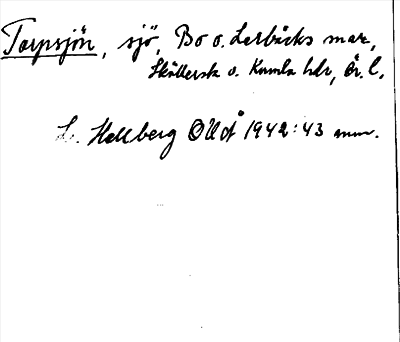 Torpsjön, sjö, Bo o. Lerbäcks snr,
Skyllersta o. Kumla hdr, Ör. l.
L. Hellberg OUÅ 1942:43 mm.